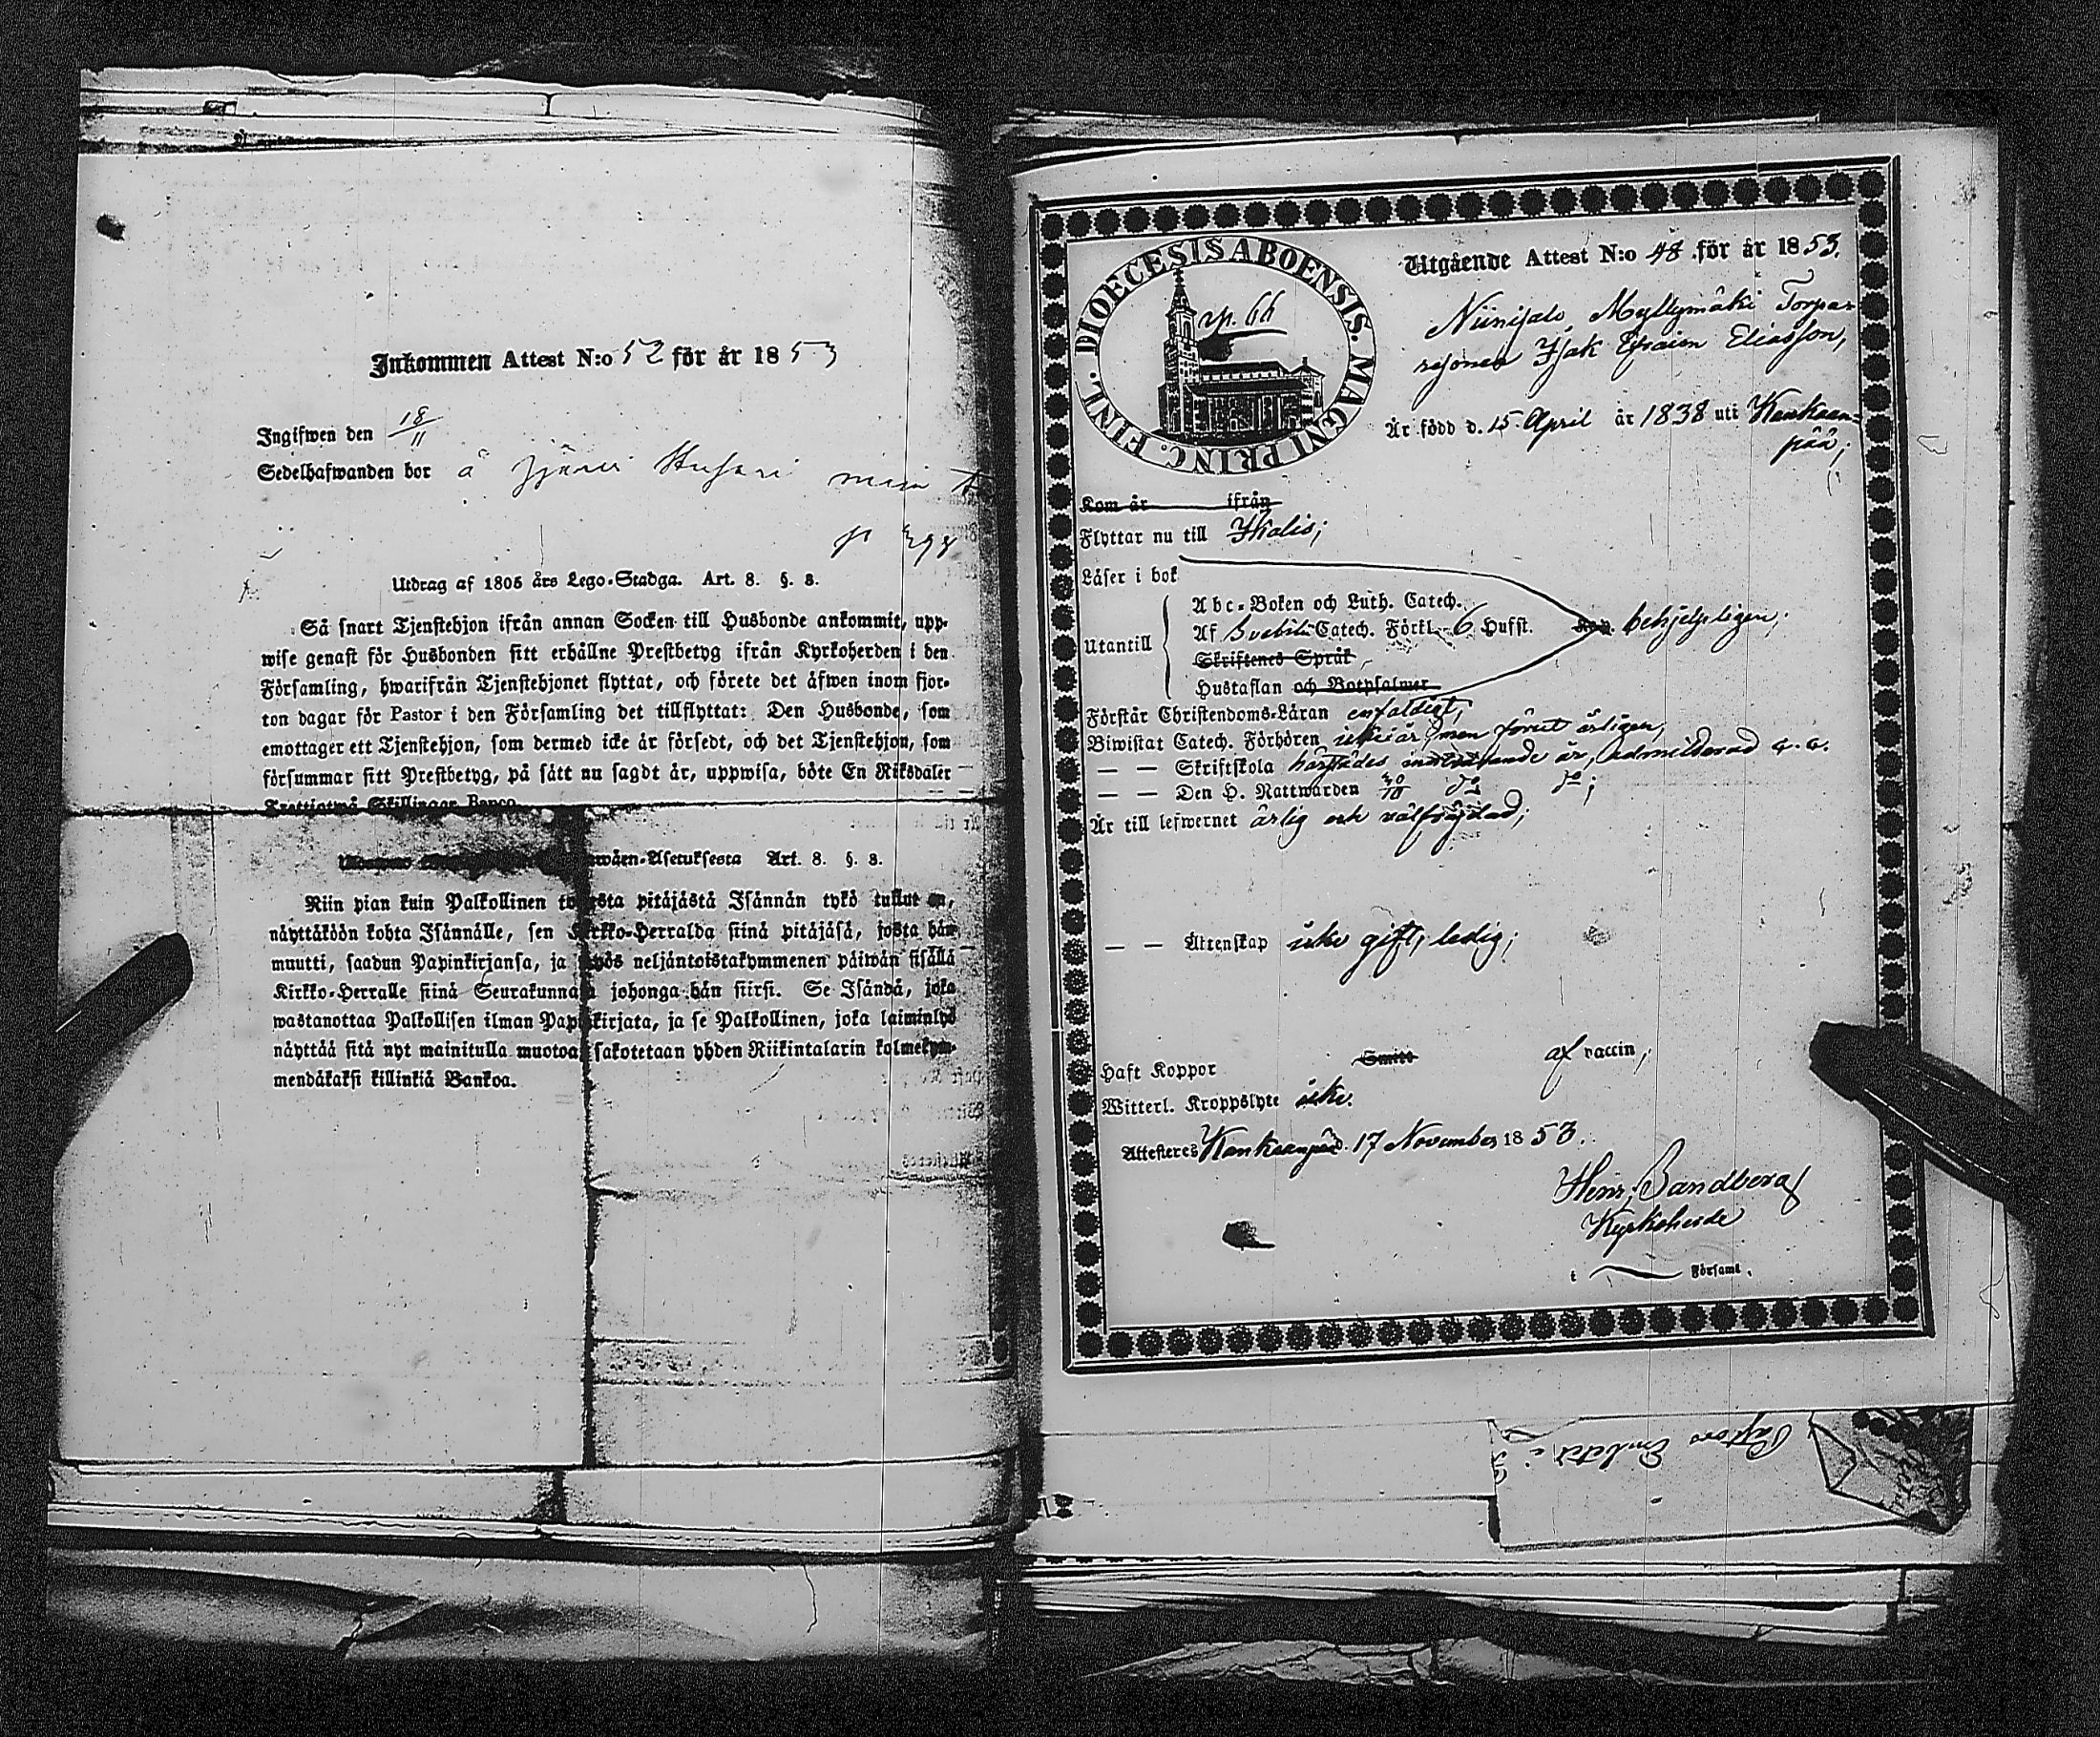 Inkommen Attest N:o 52 för år 1853
Ingifwen den 18/11
Sedelhafwanden bor å
Utdrag af 1805 års Lego-Stadga. Art. 8. §. 8.
Så snart Tjenstehjon ifrån annan Socken till Husbonde ankommit, upp-
wise genast för Husbonden sitt erhållne Prestbetyg ifrån Kyrkoherden i den
Församling, hwarifrån Tjenstehjonet flyttat, och förete det äfwen inom fjor-
ton dagar för Pastor i den Församling det tillflyttat: Den Husbonde, som
emottager ett Tjenstehjon, som dermed icke är försedt, och det Tjenstehjon, som
försummar sitt Prestbetyg, på sätt nu sagdt är, uppwisa, böte En Riksdaler
Trettiotwå Skillingar Banco.
Asetuksesta Art. 8. §. 8.
Niin pian kuin Palkollinen toisesta pitäjästä Isännän tykö tullut on,
näyttäköön kohta Isännälle, sen Kirkko-Herralda siinä pitäjäsä, josta hän
muutti, saadun Papinkirjansa, ja myös neljäntoistakymmenen päiwän sisällä
Kirkko-Herralle siinä Seurakunnasa johonga hän siirsi. Se Isändä, joka
wastanottaa Palkollisen ilman Papinkirjata, ja se Palkollinen, joka laiminlyö
näyttää sitä nyt mainitulla muotoa, sakotetaan yhden Riikintalarin kolmekym-
mendäkaksi killinkiä Bankoa.
DIOECESIS ABOENSIS. MAGNI PRINC. FINL.
p. 66
Utgående Attest N:o 48 för år 1853.
Niinisalo Myllymäki Torpar
sonen Isak Efraim Eliasson,
Är född d. 15 April år 1838 uti Kankaan-
pää;
Kom år ifrån
Flyttar nu till Ikalis;
Läser i bok
Utantill
Abc-Boken och Luth. Catech.
Af Svebili Catech. Förkl. 6 Hufst. behjelpligen;
Skriftenes Språk
Hustaflan och Botpsalmer
Förstår Christendoms-Läran enfaldigt;
Biwistat Catech. Förhören icke i år, men förut årligen;
— — Skriftskola härstädes innevarande år, admitterad
— — Den H. Nattwarden
Är till lefwernet ärlig och välfrejdad;
— — Äktenskap icke gift, ledig;
Haft Koppor Smitt af vaccin,
Witterl. Kroppslyte icke.
Attesteres Kankaanpää 17 November 1853.
Henr. Sandberg
Kyrkoherde
i Församl.
Pastors Embetet i